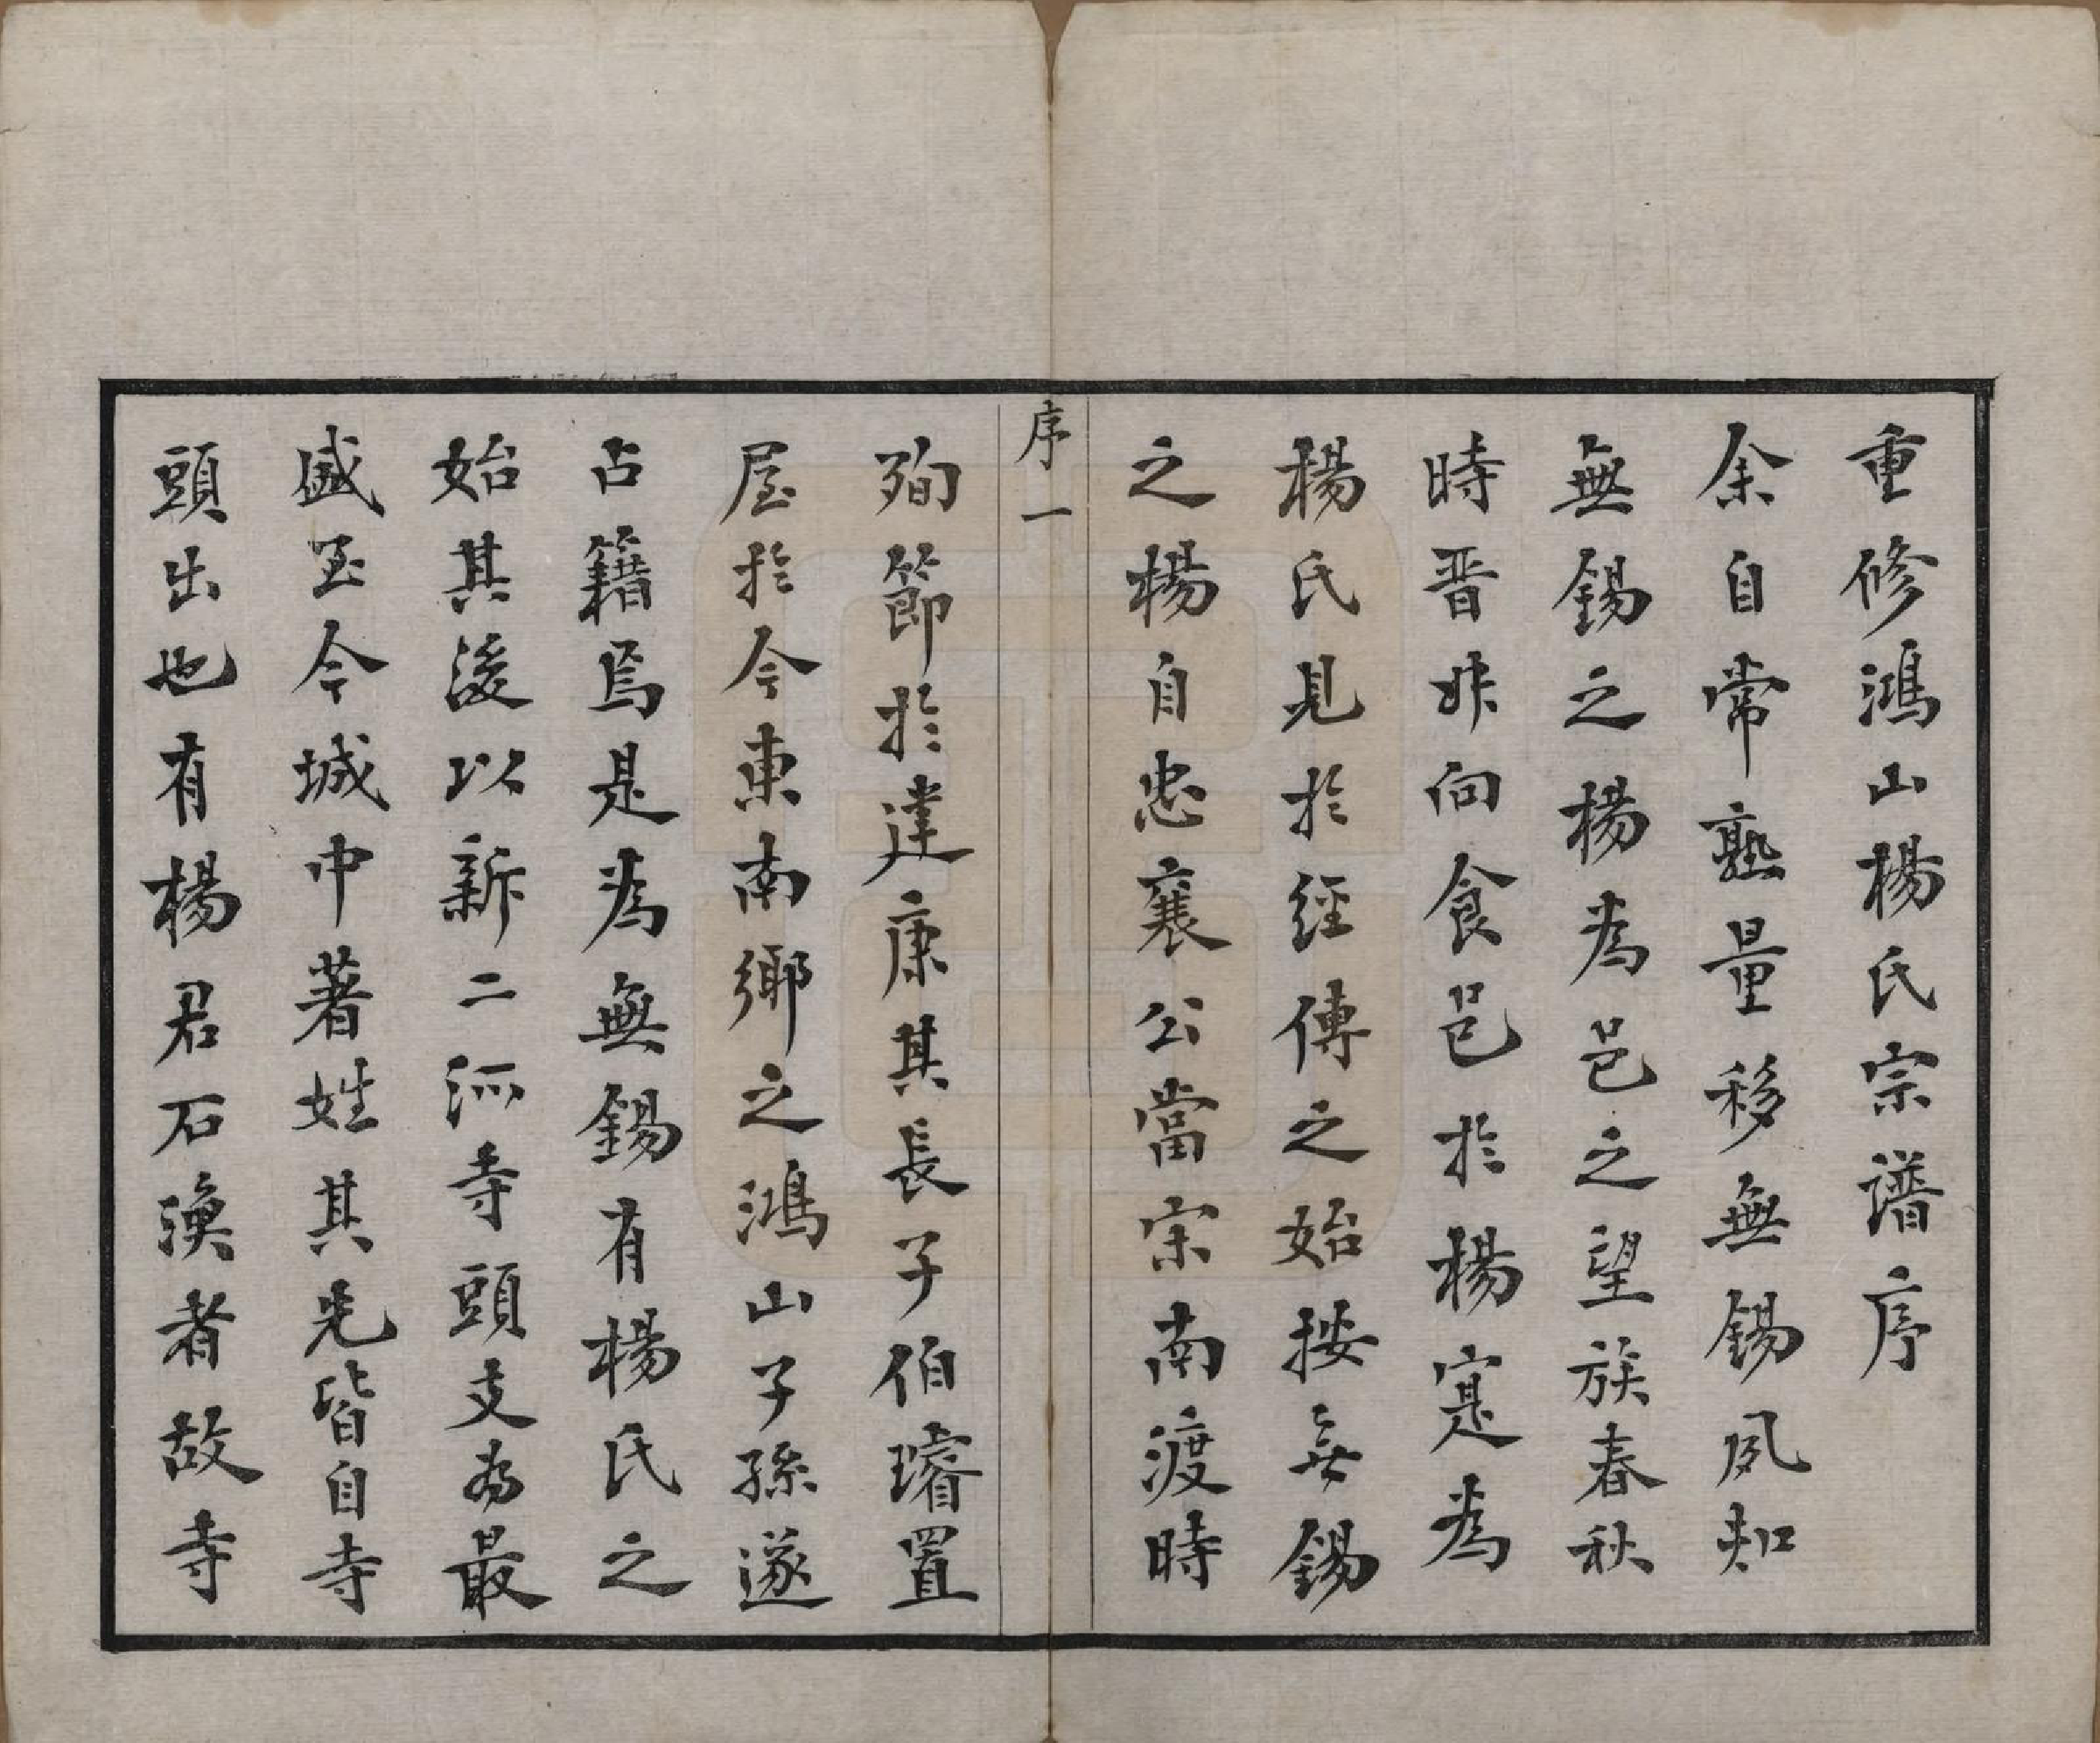 重修鴻山楊氏宗譜序
余自常熟量移無錫夙知
無錫之楊為邑之望族春秋
時晋叔向食邑於楊寔為
楊氏見於經傳之始按無錫
之楊自忠襄公當宋南渡時
序一
殉節於建康其長子伯璿置
屋於今東南鄉之鴻山子孫遂
占籍焉是為無錫有楊氏之
始其後以新二派寺頭支為最
盛至今城中著姓其先皆自寺
頭出也有楊君石漁者故寺